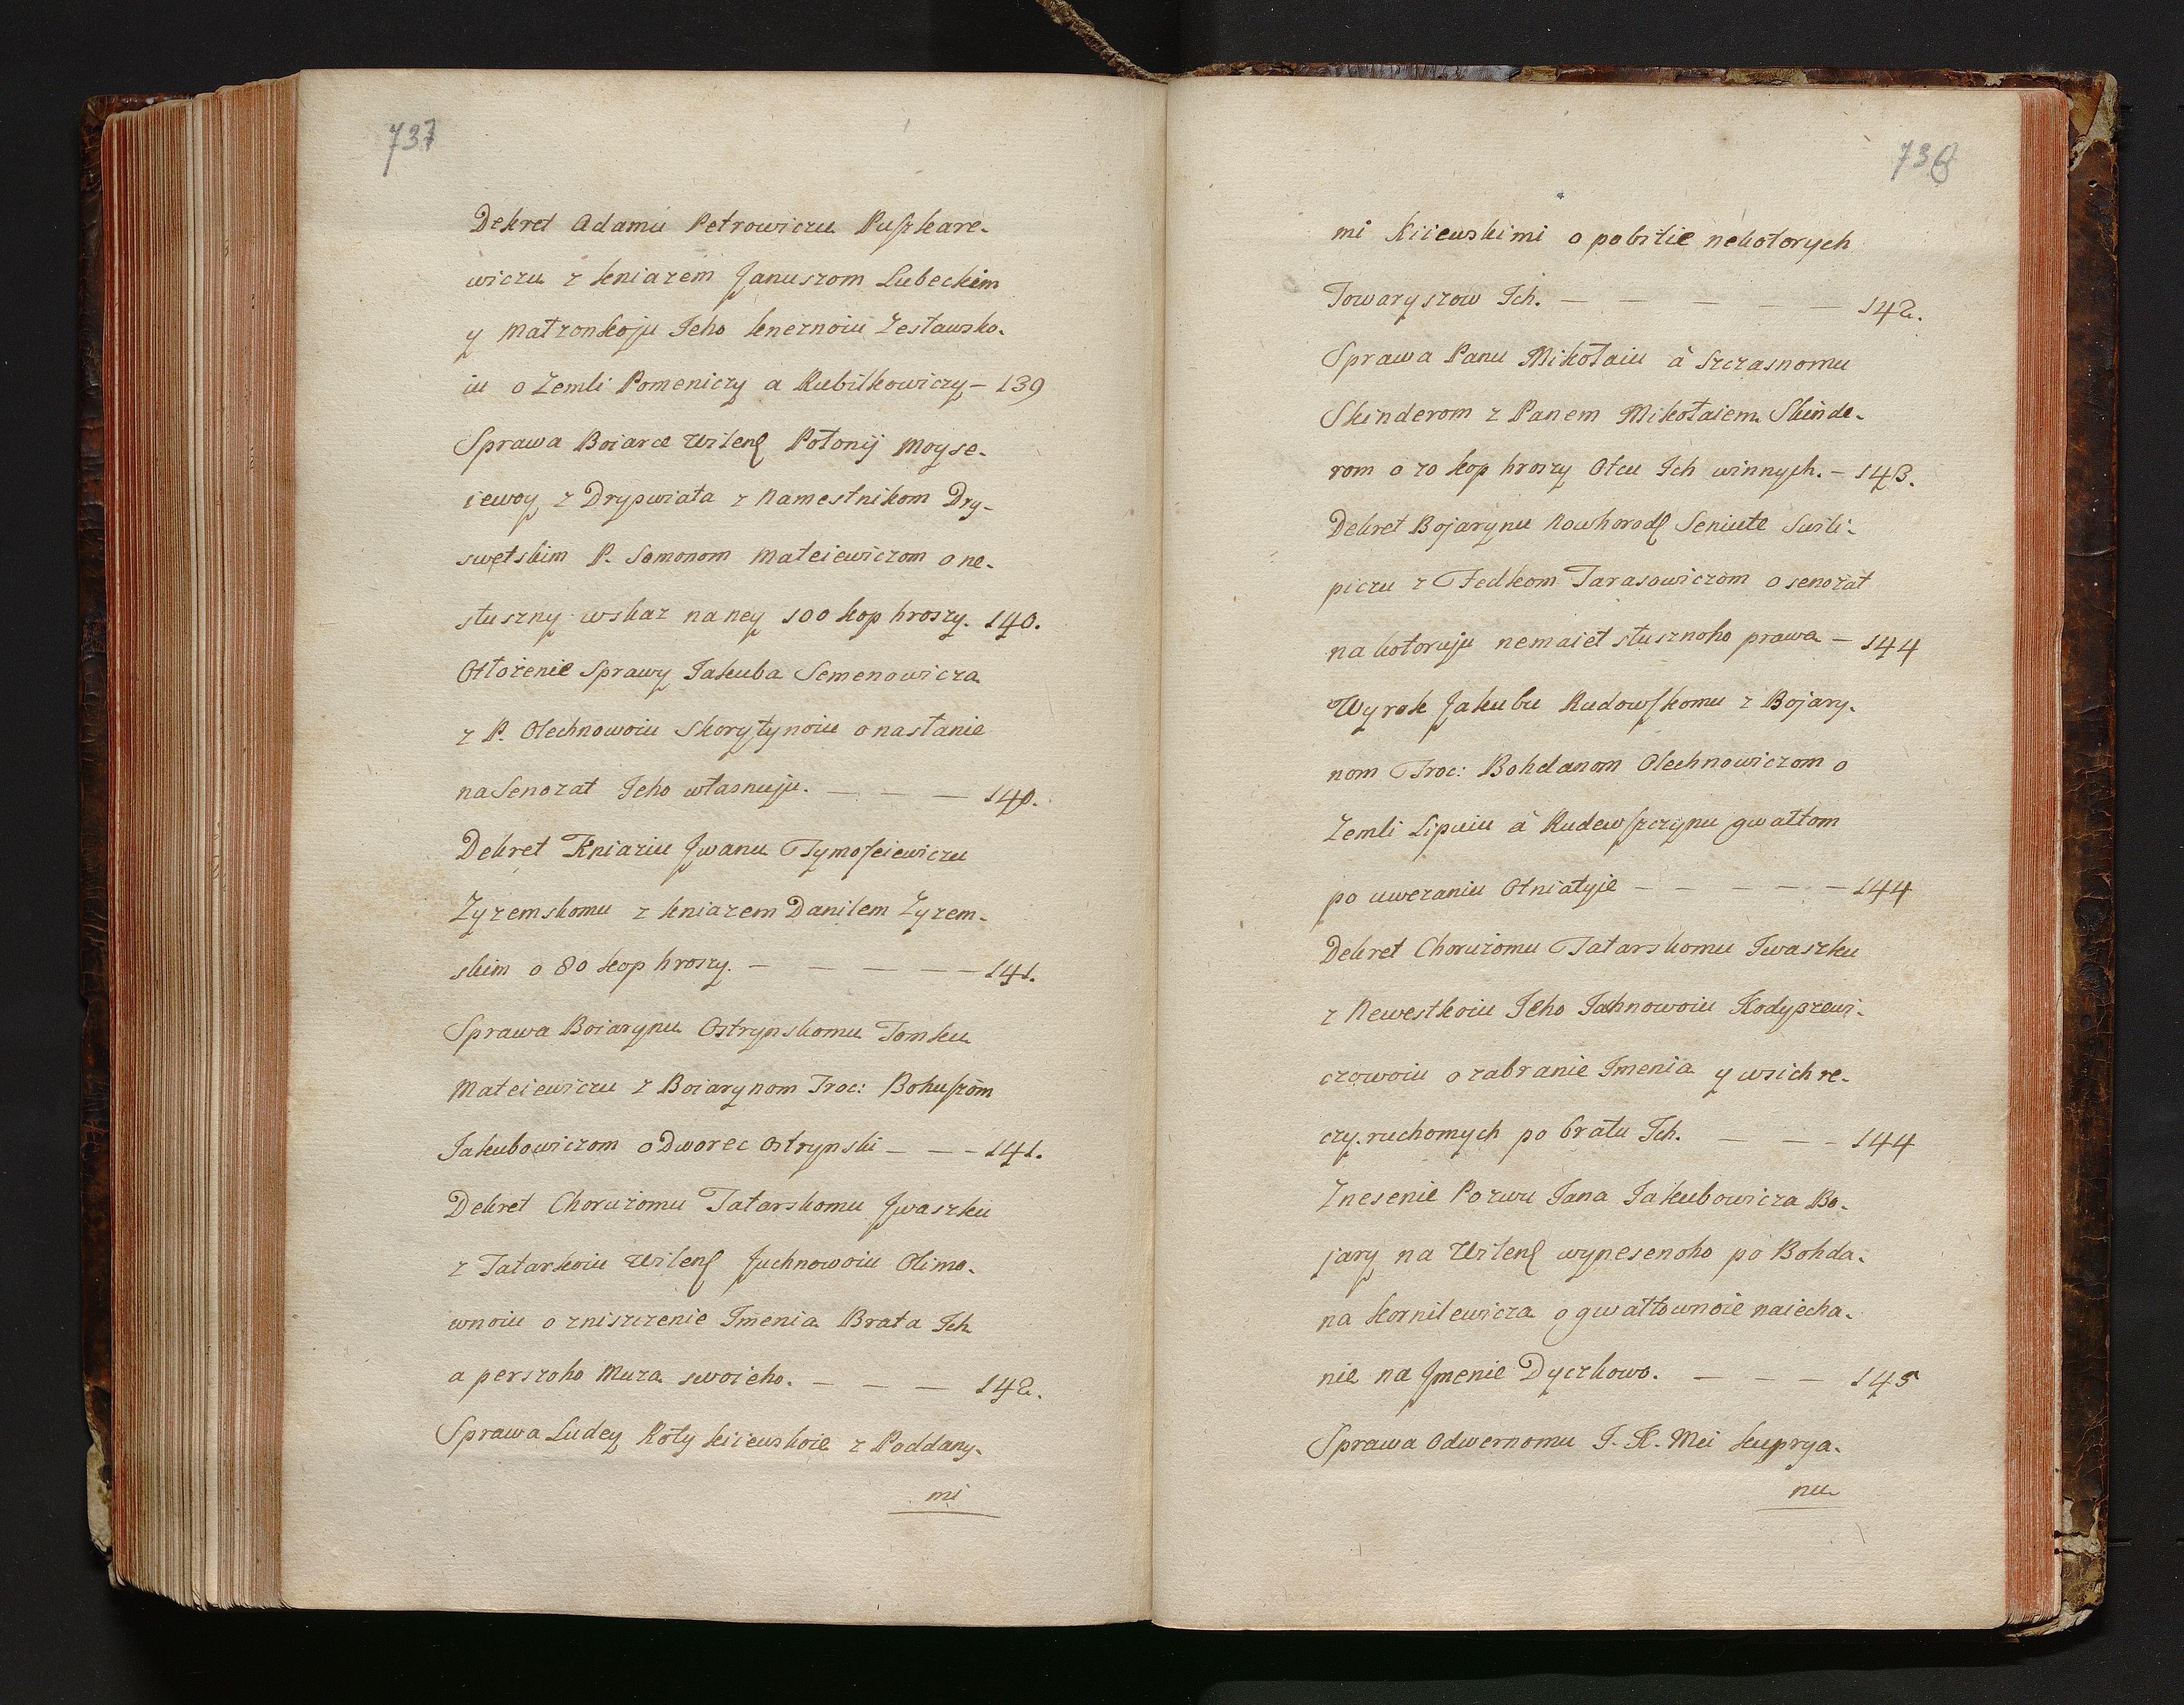 737
Dekret Adamu Petrowiczu Puszkare-
wiczu z kniazem Januszom Lubeckim
y Matzonkoju Jeho kneznoiu Zesławsko-
iu o Zemli Pomeniczy a Rubilkowiczy – 139
Sprawa Boiarce Wilens Połonij Moyse-
iewoy z Drypwiata z Namestnikom Dry-
swetskim P. Semonom Mateiewiczom o ne-
słuszny wskaz na ney 100 kop hroszy. 140.
Otłożenie Sprawy Jakuba Semenowicza
z P. Olechnowoiu Skorytynoiu o nasłanie
na Senożat Jeho własnuju. – – – 140.
Dekret Kniaziu Jwanu Tymofeiewiczu
Zyzemskomu z kniazem Daniłem Zyzem-
skim o 80 kop hroszy. – – – – – 141.
Sprawa Boiarynu Ostrynskomu Tomku
Mateiewiczu z Boiarynom Troc: Bohuszom
Jakubowiczom o Dworec Ostrynski – – – 141.
Dekret Chorużomu Tatarskomu Jwaszku
z Tatarkoiu Wilens Juchnowoiu Olimo-
wnoiu o zniszczenie Jmenia Brata Jch
a perszoho Muża swoieho. – – – 142.
Sprawa Ludey Roty kiiewskoie z Poddany-
mi
738
mi Kiiewskimi o pobitie nekotorych
Towaryszow Jch. – – – – – 142.
Sprawa Panu Mikołaiu à Szczasnomu
Skinderom z Panem Mikołaiem Skinde-
rom o 20 kop hroszy Otcu Jch winnych. – 143.
Dekret Bojarynu Nowhorods Seniute Suśli-
piczu z Fedkom Tarasowiczom o senożat
na kotoruju nemaiet słusznoho prawa – 144
Wyrok Jakubu Rudowskomu z Bojary-
nom Troc: Bohdanom Olechnowiczom o
Zemli Lipuiu à Rudewszczynu gwałtom
po uwezaniu Otniatyie – – – – – 144
Dekret Chorużomu Tatarskomu Jwaszku
z Newestkoiu Jeho Jachnowoiu Kodyszewi-
czowoiu o zabranie Jmenia y wsich re-
czy ruchomych po bratu Jch. – – – 144
Znesenie Pozwu Jana Jakubowicza Bo-
jary na Wilens wynesenoho po Bohda-
na kornilewicza o gwałtownoie naiecha-
nie na Jmenie Dyczkowo. – – – 145
Sprawa Odwernomu J. K. Mci kuprya-
nu